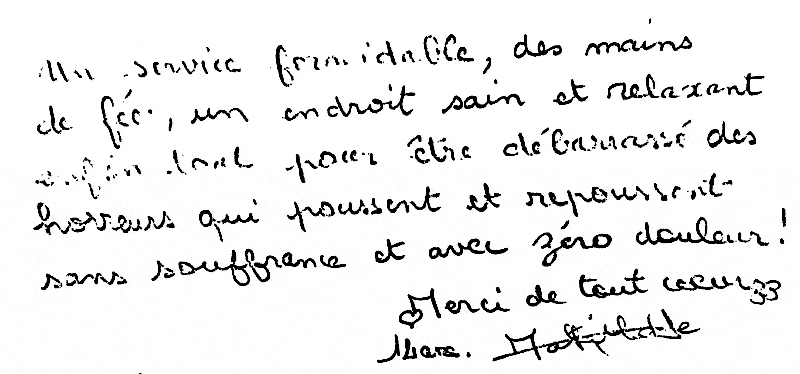 Un service formidable, des mains
de fée, un endroit sain et relaxant
enfin tout pour être débarrassé des
horreurs qui poussent et repoussent
sans souffrance et avec zéro douleur!
Merci de tout coeur
Marc. Mathilde